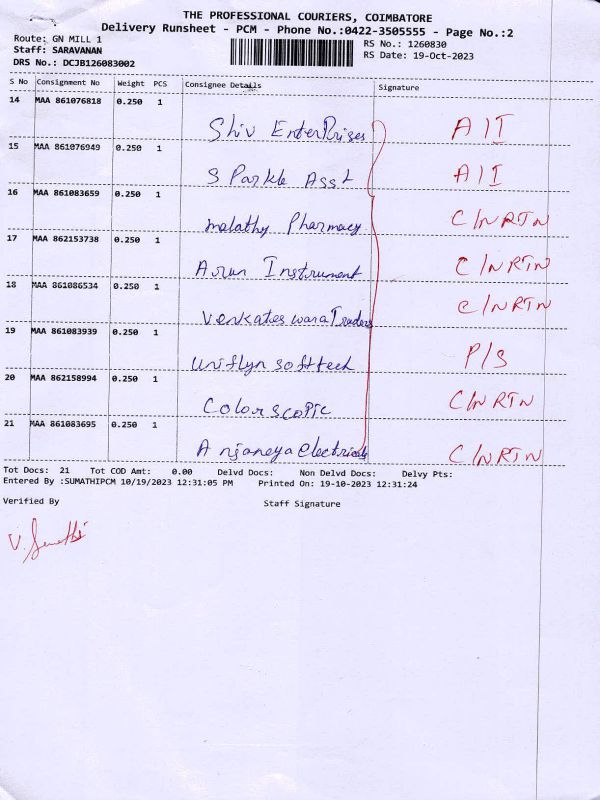 THE PROFESSIONAL COURIERS, COIMBATORE
Delivery Runsheet - PCM - Phone No.:0422-3505555 - Page No.:2
Route: GN MILL 1
RS No.: 1260830
Staff: SARAVANAN
RS Date: 19-Oct-2023
DRS No.: DCJB126083002
S No Consignment No Weight PCS Consignee Details Signature
14 MAA 861076818 0.250 1
Shiv EnterPrises A/I
15 MAA 861076949 0.250 1
S Parkle Asst A/I
16 MAA 861083659 0.250 1
malathy Pharmacy C/NRTN
17 MAA 862153738 0.250 1
Arun Instrument C/NRTN
18 MAA 861086534 0.250 1
Venkateswara Traders C/NRTN
19 MAA 861083939 0.250 1
Uniflyn softtech P/S
20 MAA 862158994 0.250 1
Colorscopic C/NRTN
21 MAA 861083695 0.250 1
Anjaneya electricals C/NRTN
Tot Docs: 21 Tot COD Amt: 0.00 Delvd Docs: Non Delvd Docs: Delvy Pts:
Entered By :SUMATHIPCM 10/19/2023 12:31:05 PM Printed On: 19-10-2023 12:31:24
Verified By Staff Signature